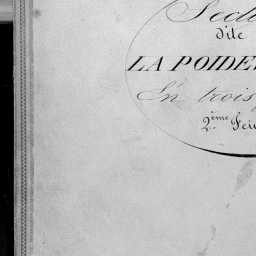 Secti
dite
LA POIDE
En trois
2.ème Feui